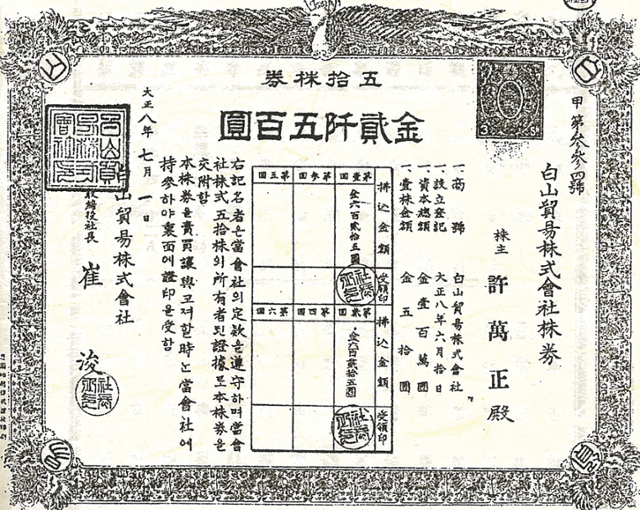 五拾株券
金貳阡五百圓
甲第參參四號
白山貿易株式會社株券
株主 許萬正殿
一、商號 白山貿易株式會社
一、設立登記 大正八年六月拾日
一、資本總額 金壹百萬圓
一、壹株金額 金五拾圓
拂込金額
受領印
第壹回
金六百貳拾五圓
第參回
第五回
拂込金額
受領印
第貳回
金六百貳拾五圓
第四回
第六回
右記名者는當會社의定欵을遵守하며當會
社株式五拾株의所有者된證據로本株券을
交附함
本株券을賣買讓與코져할時는當會社에
持參하야裏面에證印을受함
大正八年七月一日
白山貿易株式會社
取締役社長 崔浚